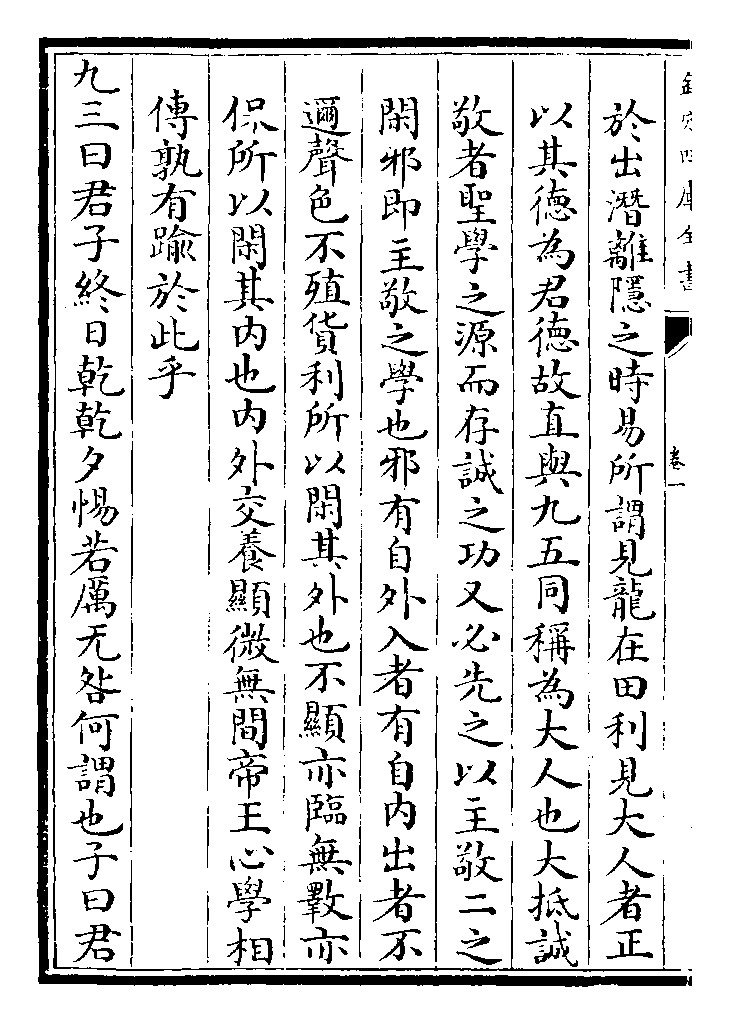 欽定四庫全書
卷一
於出潛離隱之時易所謂見龍在田利見大人者正
以其德為君德故直與九五同稱為大人也大抵誠
敬者聖學之源而存誠之功又必先之以主敬二之
閑邪即主敬之學也邪有自外入者有自内出者不
邇聲色不殖貨利所以閑其外也不顯亦臨無斁亦
保所以閑其内也内外交養顯微無間帝王心學相
傳孰有踰於此乎
九三曰君子終日乾乾夕惕若厲无咎何謂也子曰君